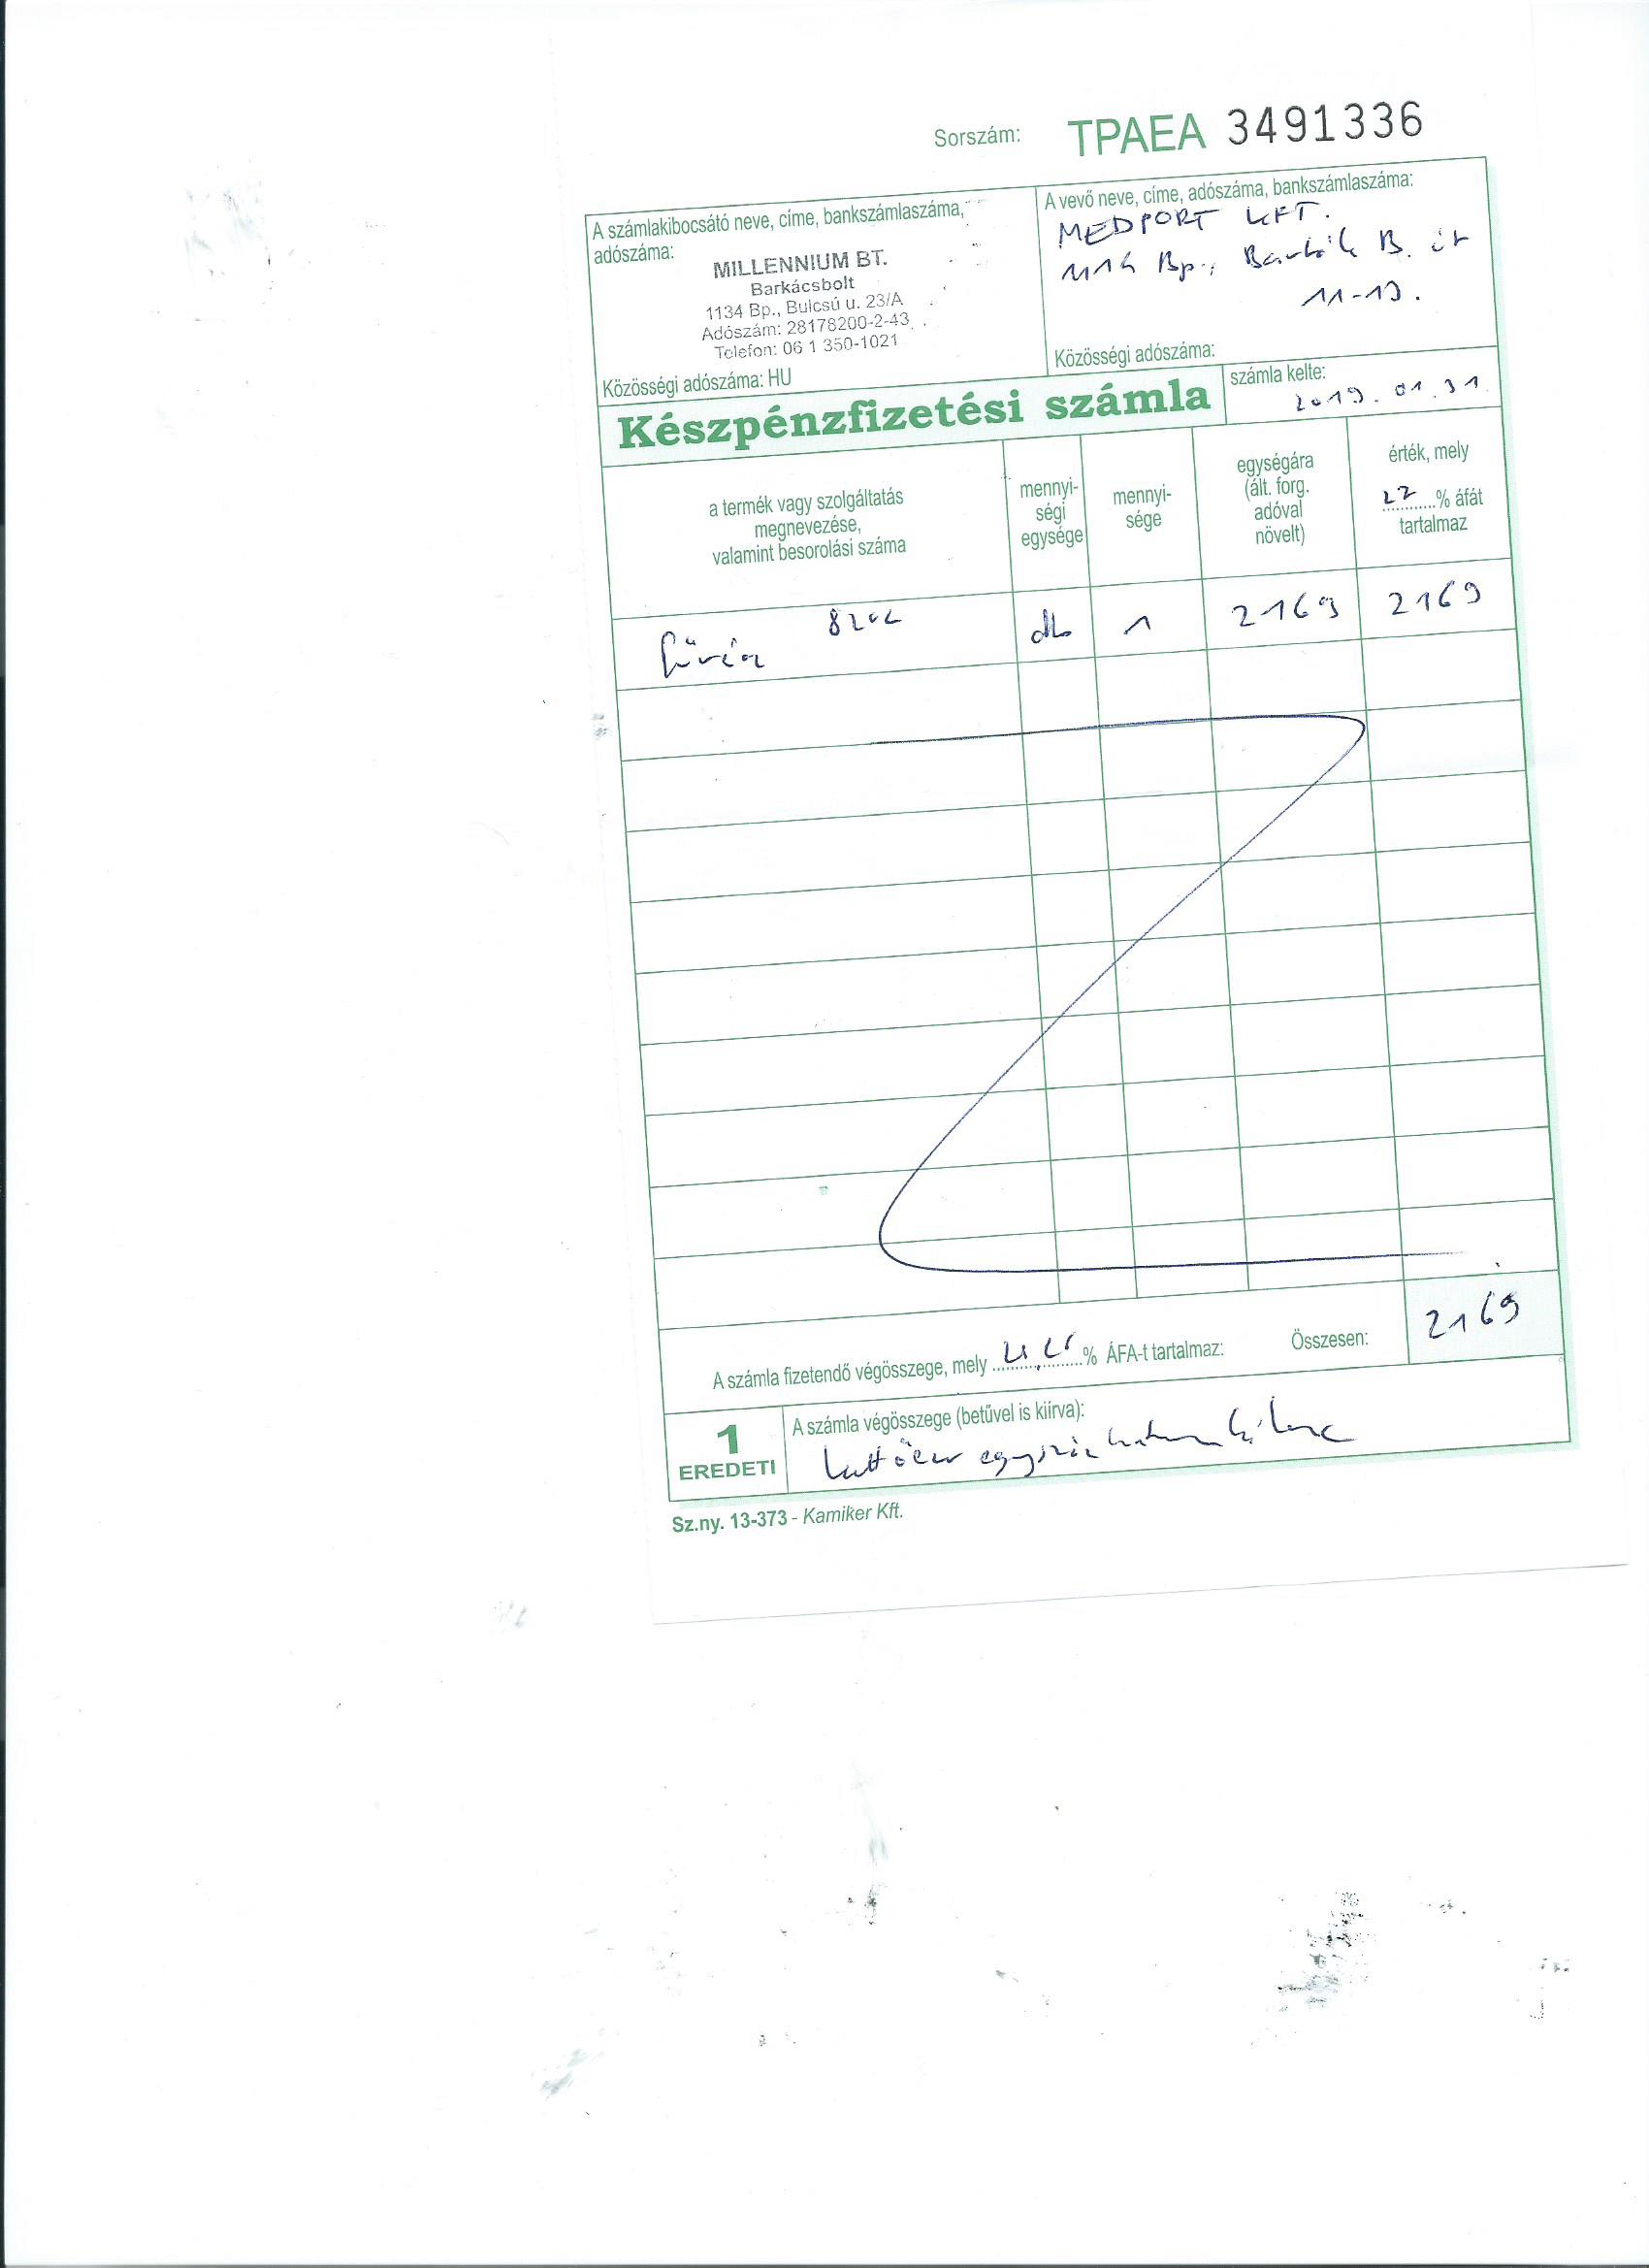 Sorszám: TPAEA 3491336
A számlakibocsátó neve, címe, bankszámlaszáma,
adószáma:
MILLENNIUM BT.
Barkácsbolt
1134 Bp., Bulcsú u. 23/A
Adószám: 28178200-2-43
Telefon: 06 1 350-1021
Közösségi adószáma: HU
A vevő neve, címe, adószáma, bankszámlaszáma:
MEDPORT KFT.
1114 Bp., Bartók B. út
11-13.
Közösségi adószáma:
Készpénzfizetési számla
számla kelte:
2019. 01. 31.
a termék vagy szolgáltatás
megnevezése,
valamint besorolási száma
mennyi-
ségi
egysége
mennyi-
sége
egységára
(ált. forg.
adóval
növelt)
érték, mely
27 % áfát
tartalmaz
8202
db 1 2169 2169
A számla fizetendő végösszege, mely 21,26 % ÁFA-t tartalmaz: Összesen: 2169
1
EREDETI
A számla végösszege (betűvel is kiírva):
kettőezer egyszázhatvankilenc
Sz.ny. 13-373 - Kamiker Kft.